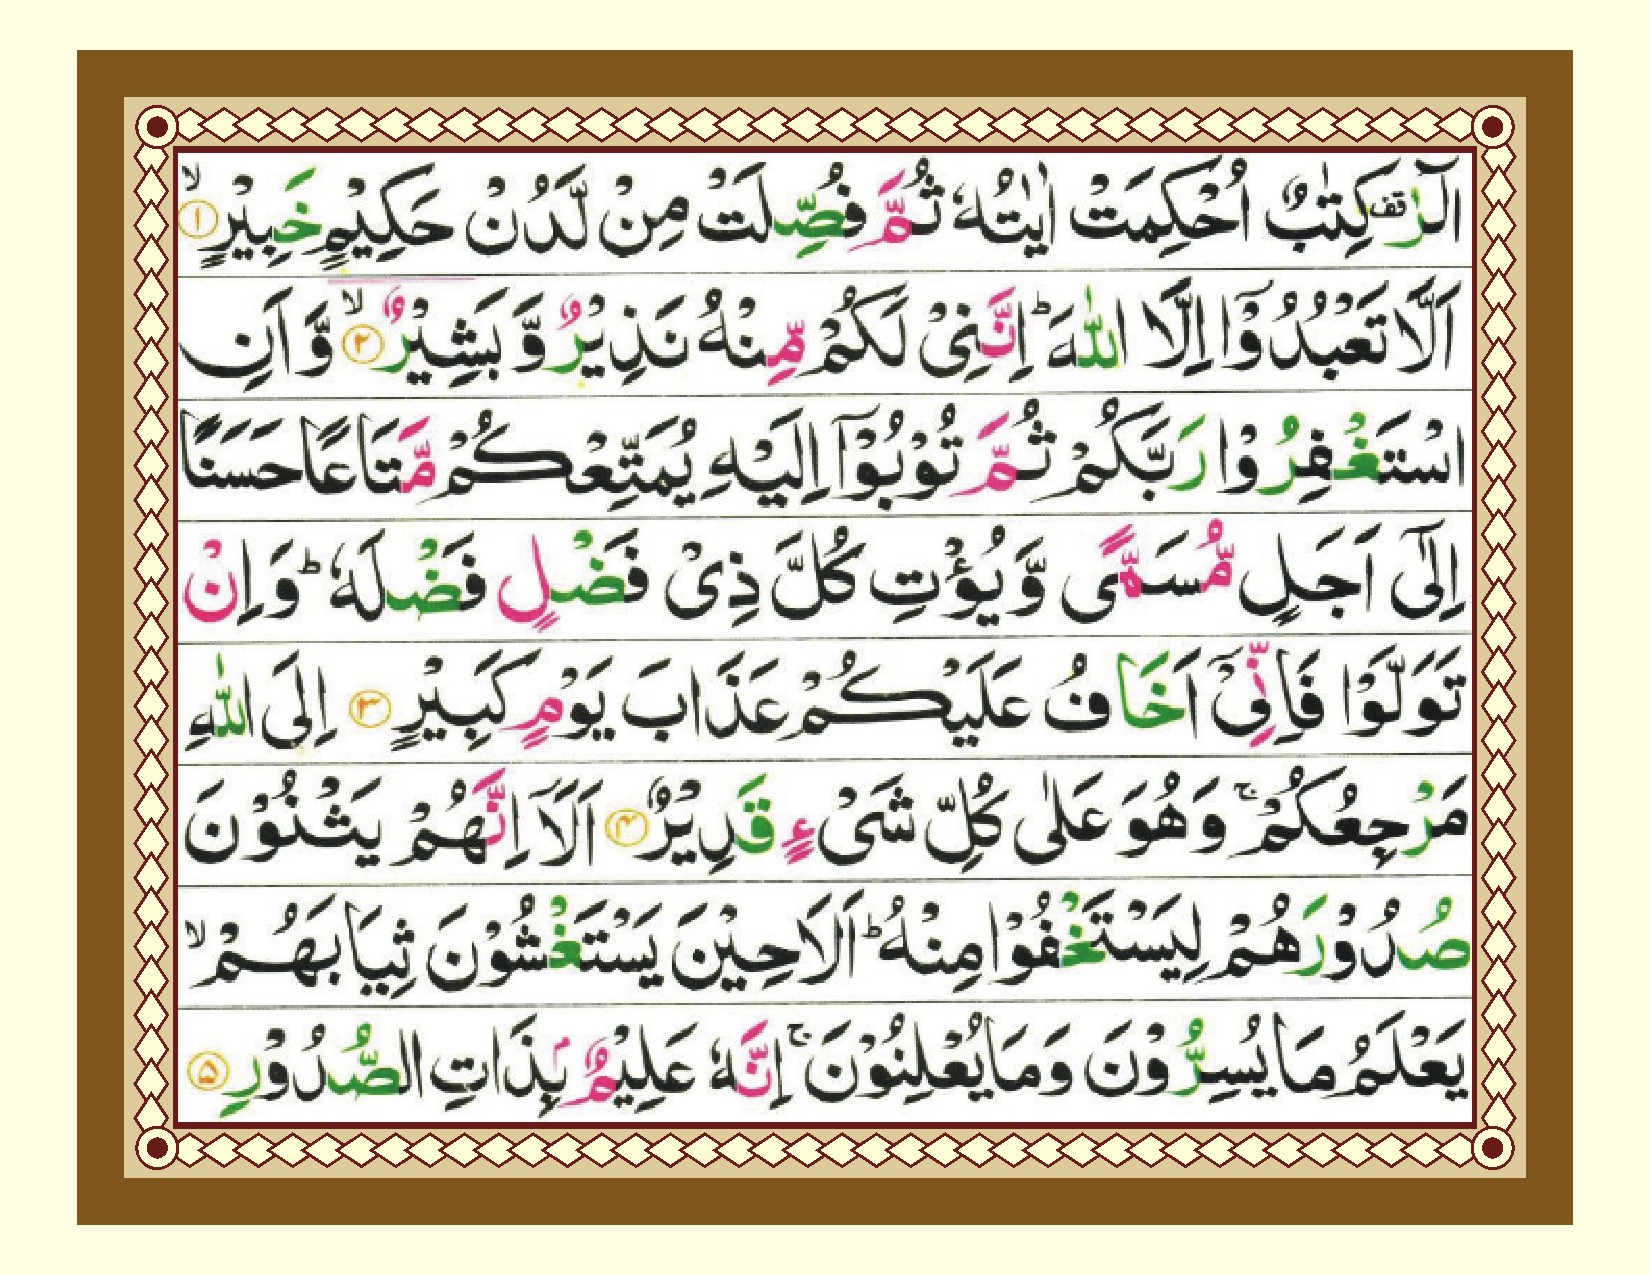 الٓرٰ قف كِتٰبٌ اُحْكِمَتْ اٰيٰتُهٗ ثُمَّ فُصِّلَتْ مِنْ لَّدُنْ حَكِيْمٍ خَبِيْرٍ ۙ‏ ﴿۱﴾
اَلَّا تَعْبُدُوْۤا اِلَّا اللّٰهَ ؕ اِنَّنِىْ لَكُمْ مِّنْهُ نَذِيْرٌ وَّ بَشِيْرٌ ۙ‏ ﴿۲﴾ وَّ اَنِ
اسْتَغْفِرُوْا رَبَّكُمْ ثُمَّ تُوْبُوْۤا اِلَيْهِ يُمَتِّعْكُمْ مَّتَاعًا حَسَنًا
اِلٰٓى اَجَلٍ مُّسَمًّى وَّ يُؤْتِ كُلَّ ذِىْ فَضْلٍ فَضْلَهٗ ؕ وَاِنْ
تَوَلَّوْا فَاِنِّىْۤ اَخَافُ عَلَيْكُمْ عَذَابَ يَوْمٍ كَبِيْرٍ ﴿۳﴾ اِلَى اللّٰهِ
مَرْجِعُكُمْ ۚ وَهُوَ عَلٰى كُلِّ شَىْءٍ قَدِيْرٌ ﴿۴﴾ اَلَاۤ اِنَّهُمْ يَثْنُوْنَ
صُدُوْرَهُمْ لِيَسْتَخْفُوْا مِنْهُ ؕ اَلَا حِيْنَ يَسْتَغْشُوْنَ ثِيَابَهُمْ ۙ
يَعْلَمُ مَا يُسِرُّوْنَ وَمَا يُعْلِنُوْنَ ۚ اِنَّهٗ عَلِيْمٌۢ بِذَاتِ الصُّدُوْرِ ﴿۵﴾